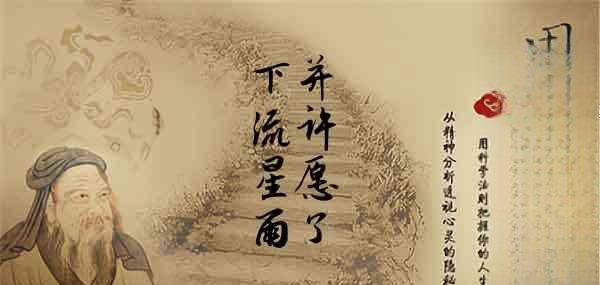 并许愿了
下流星雨
用
用科学法则把握你的人生
从精神分析透视心灵的隐秘